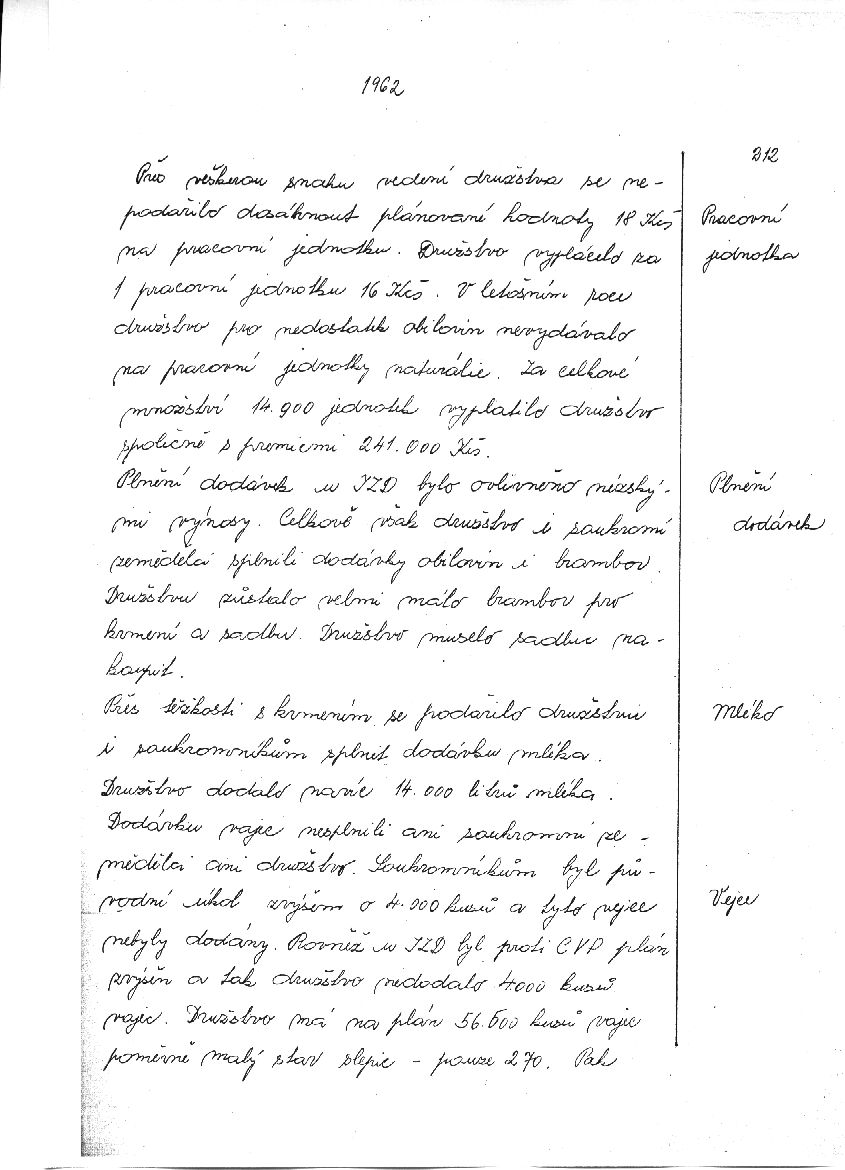 1962
312
Přes veškerou snahu vedení družstva se ne-
podařilo dosáhnout plánované hodnoty 18 Kčs
Pracovní
na pracovní jednotku. Družstvo vyplácelo za
jednotka
1 pracovní jednotku 16 Kčs. V letošním roce
družstvo pro nedostatek obilovin nevydávalo
na pracovní jednotky naturálie. Za celkové
množství 14.900 jednotek vyplatilo družstvo
společně s premiemi 241.000 Kčs.
Plnění dodávek u JZD bylo ovlivněno nízský-
Plnění
mi výnosy. Celkově však družstvo i soukromí
dodávek
zemědělci splnili dodávky obilovin i brambor.
Družstvu zůstalo velmi málo brambor pro
krmení a sadbu. Družstvo muselo sadbu na-
koupit.
Přes těžkosti s krmením se podařilo družstvu
Mléko
i soukromníkům splnit dodávku mléka.
Družstvo dodalo navíc 14.000 litrů mléka.
Dodávku vajec nesplnili ani soukromní ze-
mědělci ani družstvo. Soukromníkům byl pů-
vodní úkol zvýšen o 4.000 kusů a tyto vejce
Vejce
nebyly dodány. Rovněž u JZD byl proti CVP plán
zvýšen a tak družstvo nedodalo 4000 kusů
vajec. Družstvo má na plán 56.600 kusů vajec
poměrně malý stav slepic - pouze 270. Pak